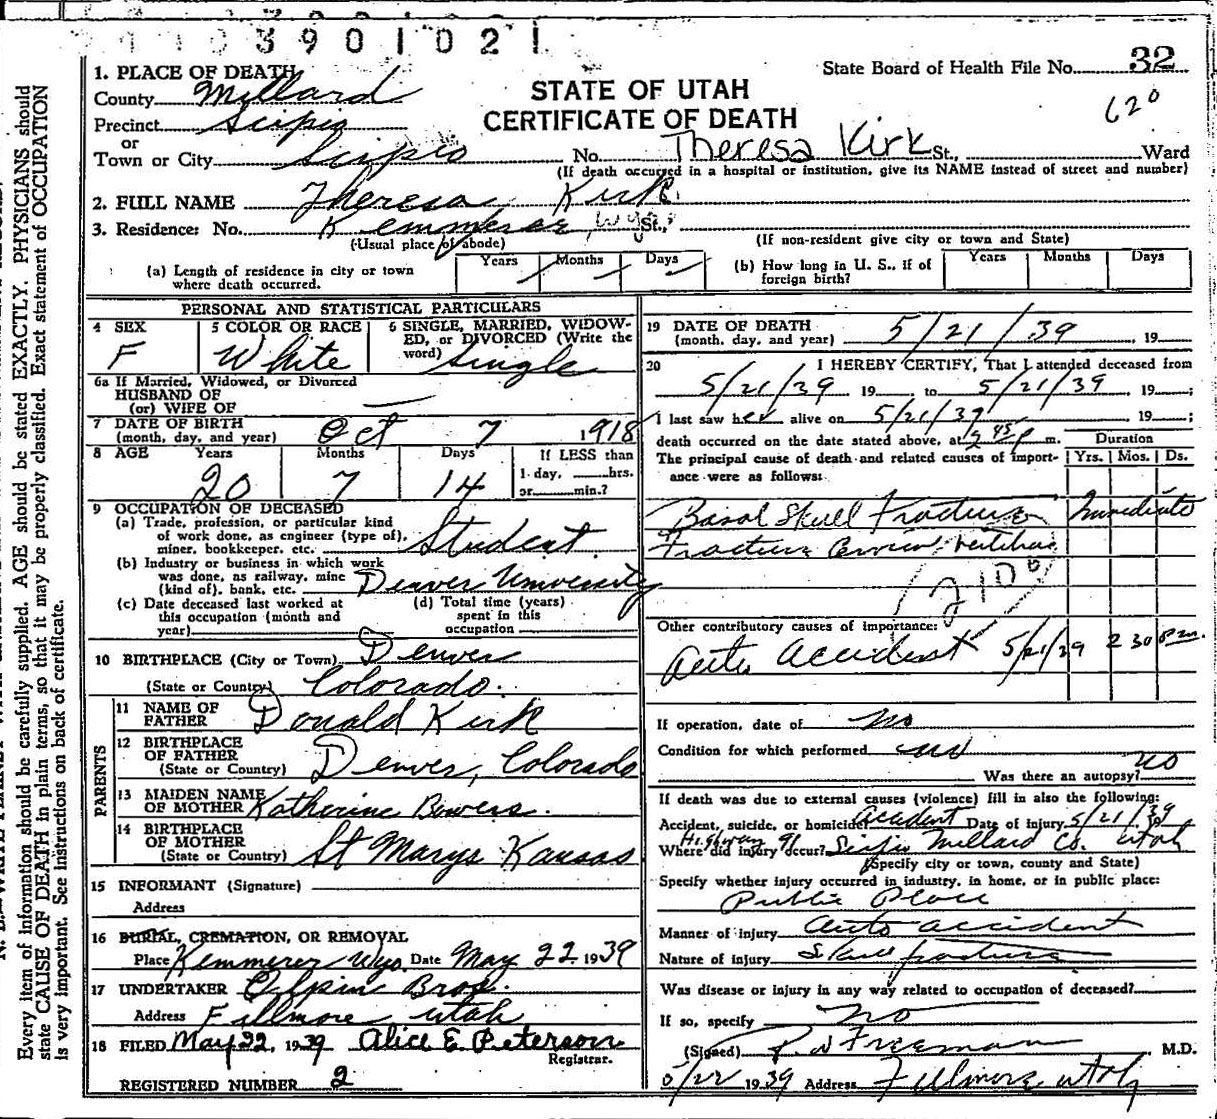 3901021
State Board of Health File No. 32
620
STATE OF UTAH
CERTIFICATE OF DEATH
1. PLACE OF DEATH
County Millard
Precinct Scipio
or
Town or City Scipio No. Theresa Kirk St., Ward
(If death occurred in a hospital or institution, give its NAME instead of street and number)
2. FULL NAME Theresa Kirk
3. Residence: No. Kemmerer, Wyo. St.,
(Usual place of abode) (If non-resident give city or town and State)
(a) Length of residence in city or town where death occurred. Years Months Days
(b) How long in U. S., if of foreign birth? Years Months Days
PERSONAL AND STATISTICAL PARTICULARS
4 SEX F
5 COLOR OR RACE White
6 SINGLE, MARRIED, WIDOWED, or DIVORCED (Write the word) Single
6a If Married, Widowed, or Divorced
HUSBAND OF
(or) WIFE OF —
7 DATE OF BIRTH
(month, day, and year) Oct 7 1918
8 AGE Years Months Days If LESS than
20 7 14 1 day, hrs.
or min.?
9 OCCUPATION OF DECEASED
(a) Trade, profession, or particular kind
of work done, as engineer (type of),
miner, bookkeeper, etc. Student
(b) Industry or business in which work
was done, as railway, mine
(kind of), bank, etc. Denver University
(c) Date deceased last worked at
this occupation (month and
year)
(d) Total time (years)
spent in this
occupation
10 BIRTHPLACE (City or Town) Denver
(State or Country) Colorado.
PARENTS
11 NAME OF
FATHER Donald Kirk
12 BIRTHPLACE
OF FATHER
(State or Country) Denver, Colorado
13 MAIDEN NAME
OF MOTHER Katherine Bowers.
14 BIRTHPLACE
OF MOTHER
(State or Country) St Marys Kansas
15 INFORMANT (Signature)
Address
16 BURIAL, CREMATION, OR REMOVAL
Place Kemmerer Wyo. Date May 22 1939
17 UNDERTAKER Olpin Bros.
Address Fillmore Utah
18 FILED May 22, 1939 Alice E Peterson
Registrar.
REGISTERED NUMBER 2
19 DATE OF DEATH
(month, day, and year) 5/21/39, 19
20 I HEREBY CERTIFY, That I attended deceased from
5/21/39 19 to 5/21/39, 19 ;
I last saw her alive on 5/21/39 19 ;
death occurred on the date stated above, at 45 P m.
The principal cause of death and related causes of importance were as follows:
Duration
Yrs. Mos. Ds.
Basal Skull Fracture Immediate
Fracture Cervical Vertebrae
210
Other contributory causes of importance:
Auto Accident 5/21/39 2 30 P.m.
If operation, date of no
Condition for which performed no
Was there an autopsy? no
If death was due to external causes (violence) fill in also the following:
Accident, suicide, or homicide? Accident Date of injury 5/21/39
Highway 91
Where did injury occur? Scipio Millard Co. Utah
(Specify city or town, county and State)
Specify whether injury occurred in industry, in home, or in public place:
Public Place
Manner of injury Auto accident
Nature of injury Skull fracture
Was disease or injury in any way related to occupation of deceased?
If so, specify No
(Signed) Freeman M.D.
5/22 1939 Address Fillmore Utah
Every item of Information should be carefully supplied. AGE should be stated EXACTLY. PHYSICIANS should
state CAUSE OF DEATH in plain terms, so that it may be properly classified. Exact statement of OCCUPATION
is very important. See instructions on back of certificate.